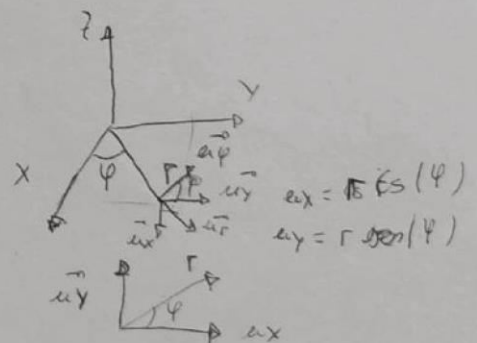 Z
Y
X
φ
r
uφ
φ
uy
ur
ux
ux = r cos(φ)
uy = r sen(φ)
uy
r
φ
ux